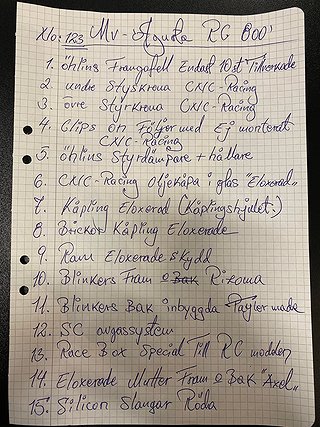 Xlo: 123 Mv-Agusta RC 800'
1. öhlins Framgafell Endast 10st Tillverkade
2. undre Styskrona CNC-Racing
3. övre Styrkrona CNC-Racing
4. Clips on Följer med Ej monterat
CNC-Racing
5. öhlins Styrdämpare + hållare
6. CNC-Racing oljekåpa i glas "Eloxerad"
7. Kåpling Eloxerad (Kåplingshjulet.)
8. Brickor Kåpling Eloxerade
9. Ram Eloxerade skydd
10. Blinkers Fram o Bak Rizoma
11. Blinkers Bak inbyggda Taylor made
12. SC avgassystem
13. Race Box Special Till RC modden
14. Eloxerade Mutter Fram o Bak "Axel"
15. Silicon Slangar Röda